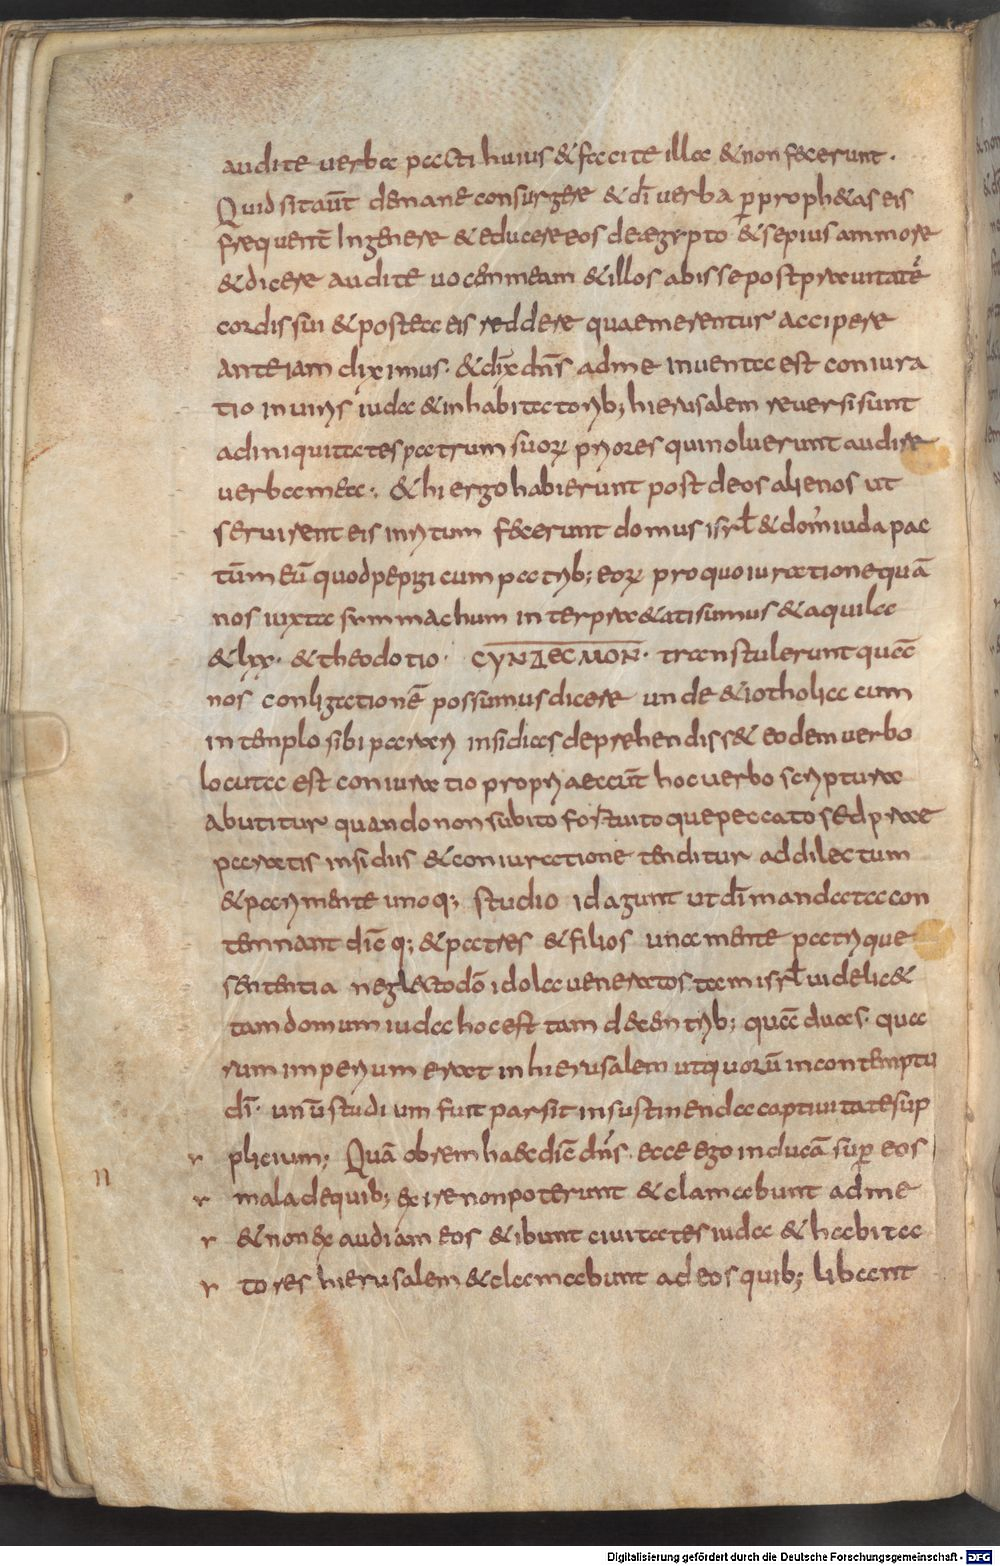 audite uerba pacti huius & facite illa & non fecerunt.
Quid sit aut̄ de mane consurgere & dī uerba p̱ proph&as eis
frequent̄ Ingerere & educere eos de ægypto & sepius ammore
& dicere audite uocem meam & illos abisse post prauitatē
cordis sui & postea eis reddere quae merentur accipere
ante iam diximus. & dix̄ dn̄s ad me inuenta est coniura
tio in uiris iuda & in habitatorib; hierusalem reuersi sunt
ad iniquitates patrum suoꝝ priores qui noluerunt audire
uerba mea. & hi ergo habierunt post deos alienos ut
seruirent eis inritum fecerunt domus isrł & dom' iuda pac
tūm eū quod pepigi cum patrib; eoꝝ pro quo iuratione quā
nos iuxta symmachum interpra&ati sumus & aquila
& lxx. & theodotio. CYNΔECMON. transtulerunt quā
nos conligationē possumus dicere unde & iotholia cum
in templo sibi parari insidias deprehendiss& eodem uerbo
locuta est coniuratio propri aeaūt hoc uerbo scriptura
abutitur quando non subito fortuitoque peccato sed præ
paratis insidiis & coniuratione tenditur ad dilectum
& pari mente uno q; studio id agunt ut dī mandata con
temnant diē q; & patres & filios una mente patrique
sententia neglecto dō idola ueneratos tam isrł uidelic&
tam domum iuda hoc est tam decem trib; quā duas. qua
rum imperium erat in hierusalem ut quorū in contemptu
dī. unū studium fuit par sit in sustinenda captiuitate sup
plicium; Quā obrem haec diē dn̄s. ecce ego inducā sup̱ eos
n
r mala de quib; exire non poterunt & clamabunt ad me
r & non ex audiam eos & ibunt ciuitates iuda & habita
r tores hierusalem & clamabunt ad eos quib; libant
Digitalisierung gefördert durch die Deutsche Forschungsgemeinschaft - DFG